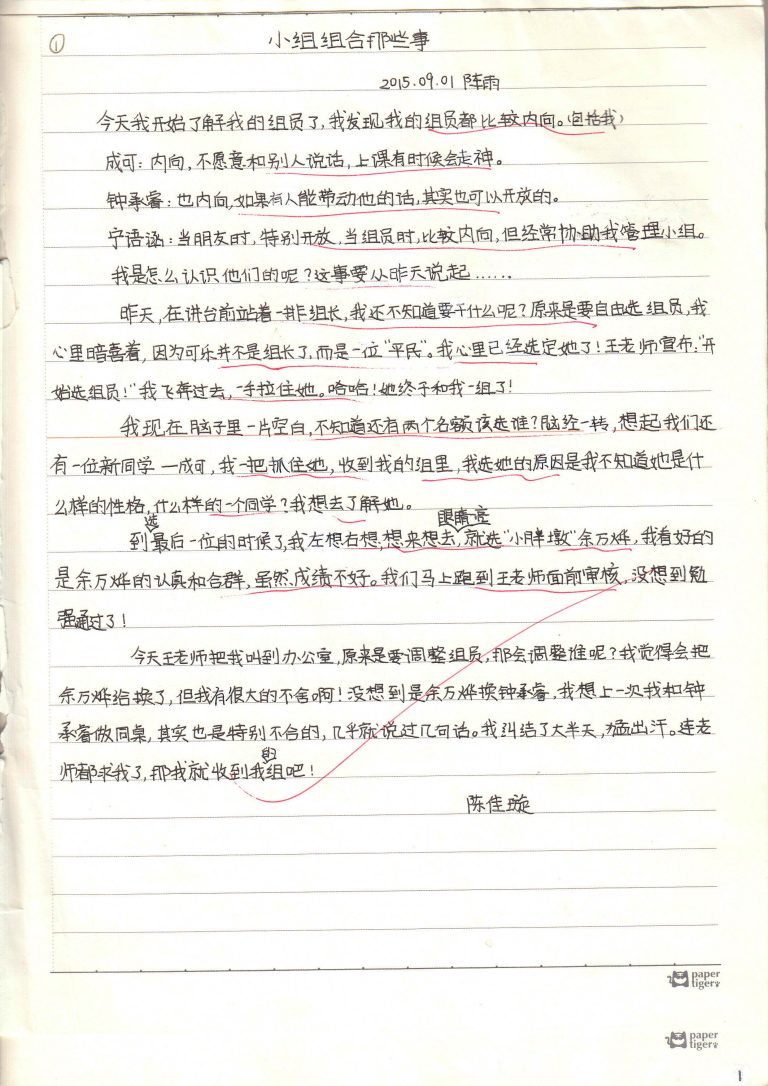 ①
小组组合那些事
2015.09.01 阵雨
今天我开始了解我的组员了,我发现我的组员都比较内向。(包括我)
成可:内向,不愿意和别人说话,上课有时候会走神。
钟承睿:也内向,如果有人能带动他的话,其实也可以开放的。
宁语涵:当朋友时,特别开放,当组员时,比较内向,但经常协助我管理小组。
我是怎么认识他们的呢?这事要从昨天说起……
昨天,在讲台前站着一排组长,我还不知道要干什么呢?原来是要自由选组员,我
心里暗喜着,因为可乐并不是组长了,而是一位“平民”。我心里已经选定她了!王老师宣布:“开
始选组员!”我飞奔过去,一手拉住她。哈哈!她终于和我一组了!
我现在脑子里一片空白,不知道还有两个名额该选谁?脑经一转,想起我们还
有一位新同学—成可,我一把抓住她,收到我的组里,我选她的原因是我不知道她是什
么样的性格,什么样的一个同学?我想去了解她。
选 眼睛定
到最后一位的时候了,我左想右想,想来想去,就选“小胖墩”余万烨,我看好的
是余万烨的认真和合群,虽然成绩不好。我们马上跑到王老师面前审核,没想到勉
强通过了!
今天王老师把我叫到办公室,原来是要调整组员,那会调整谁呢?我觉得会把
余万烨给换了,但我有很大的不舍啊!没想到是余万烨换钟承睿,我想上一次我和钟
承睿做同桌,其实也是特别不合的,几乎就说过几句话。我纠结了大半天,猛出汗。连老
的
师都求我了,那我就收到我组吧!
陈佳璇
paper
tiger
paper
tiger
1